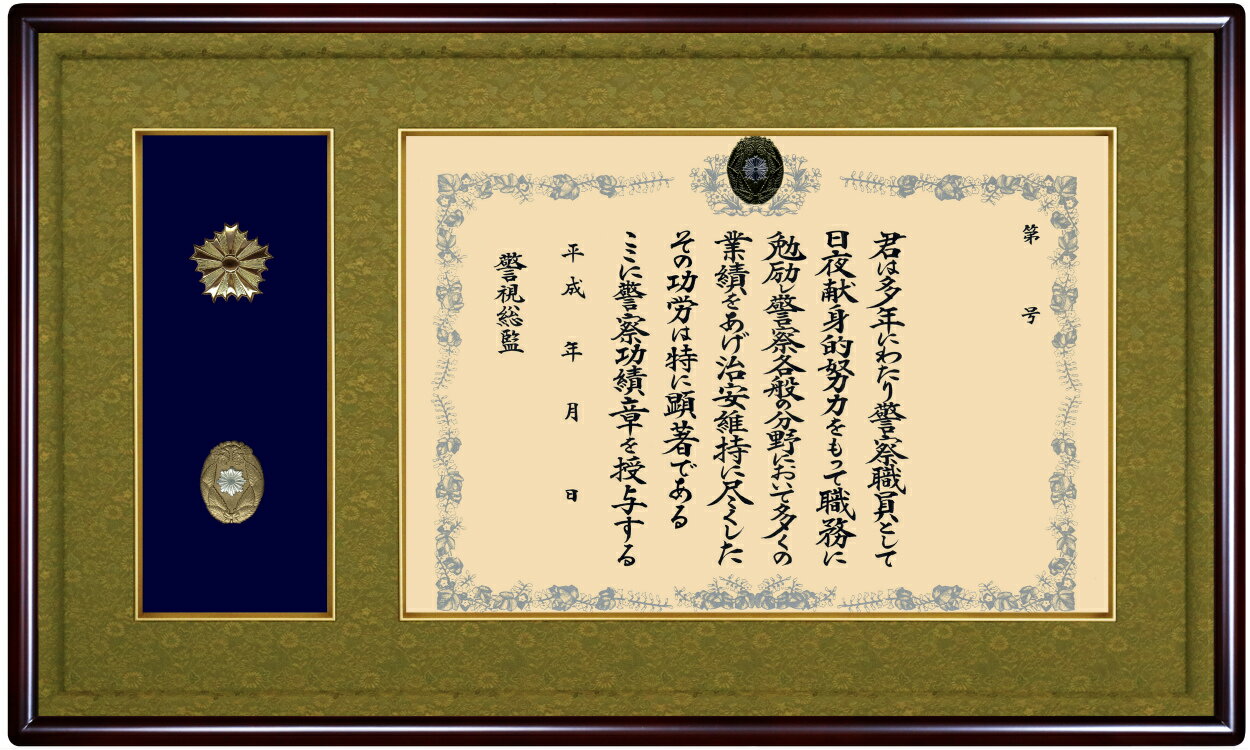 第　号
君は多年にわたり警察職員として
日夜献身的努力をもって職務に
勉励し警察各般の分野において多くの
業績をあげ治安維持に尽くした
その功労は特に顕著である
ここに警察功績章を授与する
平成　年　月　日
警視総監